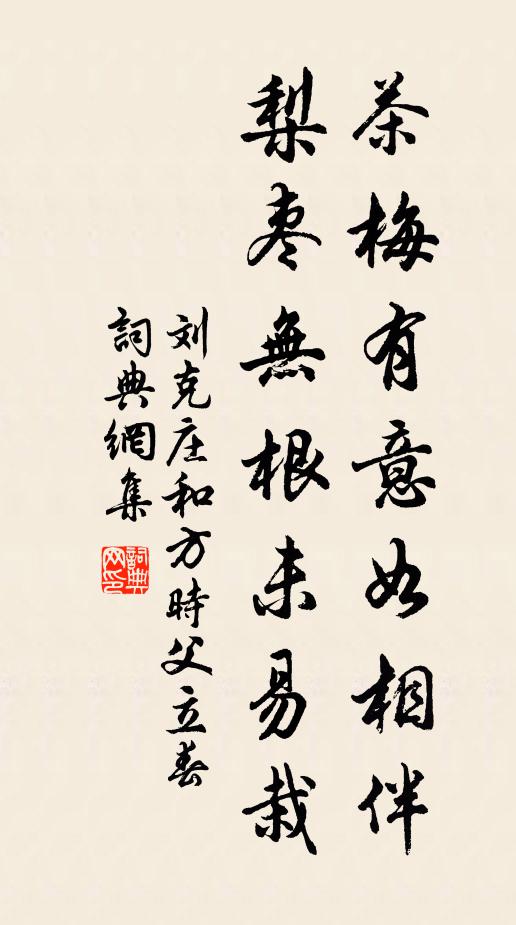 茶梅有意如相伴
梨枣無根未易栽
刘克庄和方時父立春
詞典網集
詞典网印